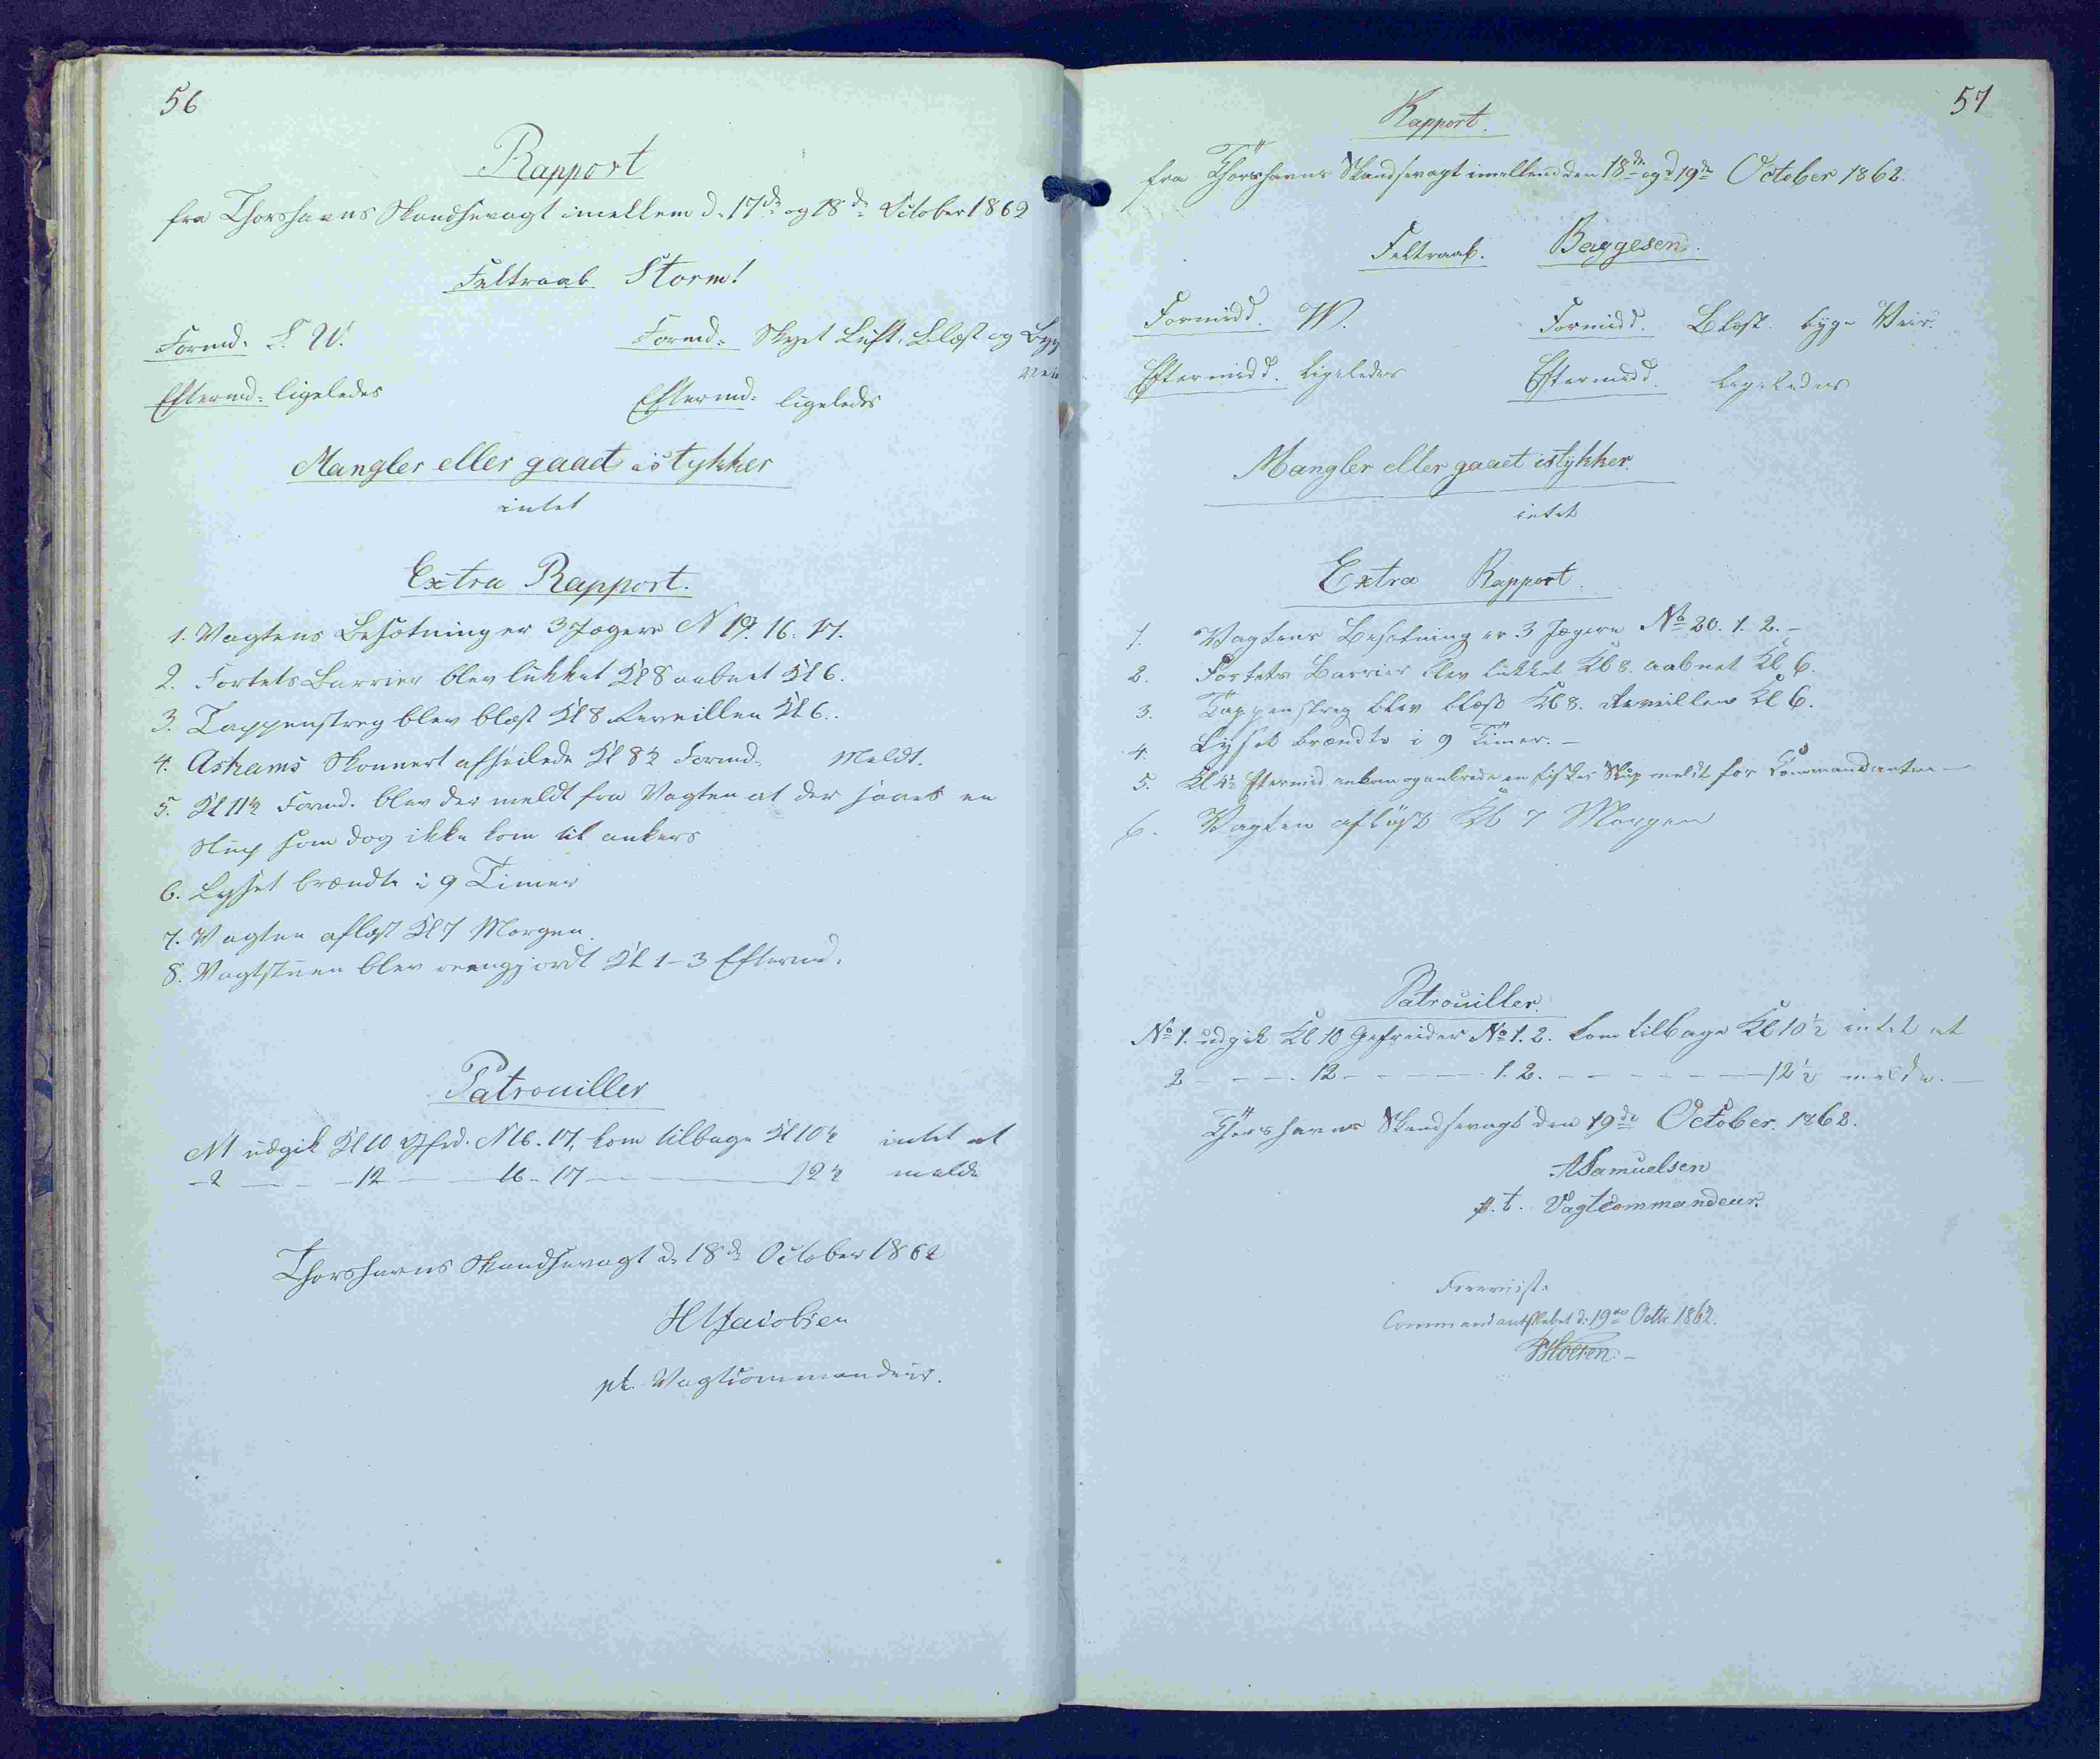 56
Rapport
fra Thorshavns Skandsevagt imellem d. 17de og 18de October 1862
Feltraab Storm!
Formd: S. W. Formd: Skyet Luft, Blæst og Byg
Veir
Eftermd: ligeledes Eftermd: ligeledes
Mangler eller gaaet istykker
intet
Extra Rapport.
1. Vagtens Besætning er 3 Jægere N 19. 16. 17.
2. Fortets Barrier blev lukket Kl 8 aabnet Kl 6.
3. Tappenstreg blev blæst Kl 8 Reveillen Kl 6.
4. Skonnert afseilede Kl 8½ Formd. Meldt.
5. Kl 11½ Formd. blev der meldt fra Vagten at der saaes en
Slup som dog ikke kom til ankers
6. Lyset brændte i 9 Timer
7. Vagten afløst Kl 7 Morgen
8. Vagtstuen blev reengjordt Kl 1-3 Eftermd.
Patrouiller
N1 udgik Kl 10 Gefrd. N 16. 17, kom tilbage Kl 10½ intet at
- 2 - - - 12 - - 16 - 17 - - - 12½ melde
Thorshavns Skandsevagt d. 18de October 1862
H Jacobsen
pt. Vagtcommandeur.
57
Rapport.
fra Thorshavns Skandsevagt imellem den 18de og d 19de October 1862.
Feltraab. Baggesen.
Formidd. W. Formidd. Blæst. byge Veir.
Eftermidd. ligeledes Eftermidd. ligeledes
Mangler eller gaaet istykker.
intet
Extra Rapport.
1. Vagtens Besætning er 3 Jægere No 20. 1. 2. -
2. Fortets Barrier blev lukket Kl 8. aabnet Kl 6.
3. Tappenstreg blev blæst Kl 8. Reveillen Kl 6.
4. Lyset brændte i 9 Timer. -
5. Kl Eftermid. ankom og ankrede en fisker Slup meldt for Commandanten -
6. Vagten afløst Kl 7 Morgen
Patrouiller.
No 1. udgik Kl 10 Gefreider No 1. 2. kom tilbage Kl 10½ intet at
2 - - - - 12 - - - - - 1. 2. - - - - - - 12½ melde. -
Thorshavns Skandsevagt den 19de October. 1862.
A Samuelsen
p. t. Vagtcommandeur.
Foreviist.
Commandantskabet d: 19de Octbr 1862.